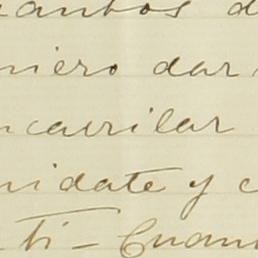 uantos d
niero dar
ncarrilar
uidate y c
ti - Cuan